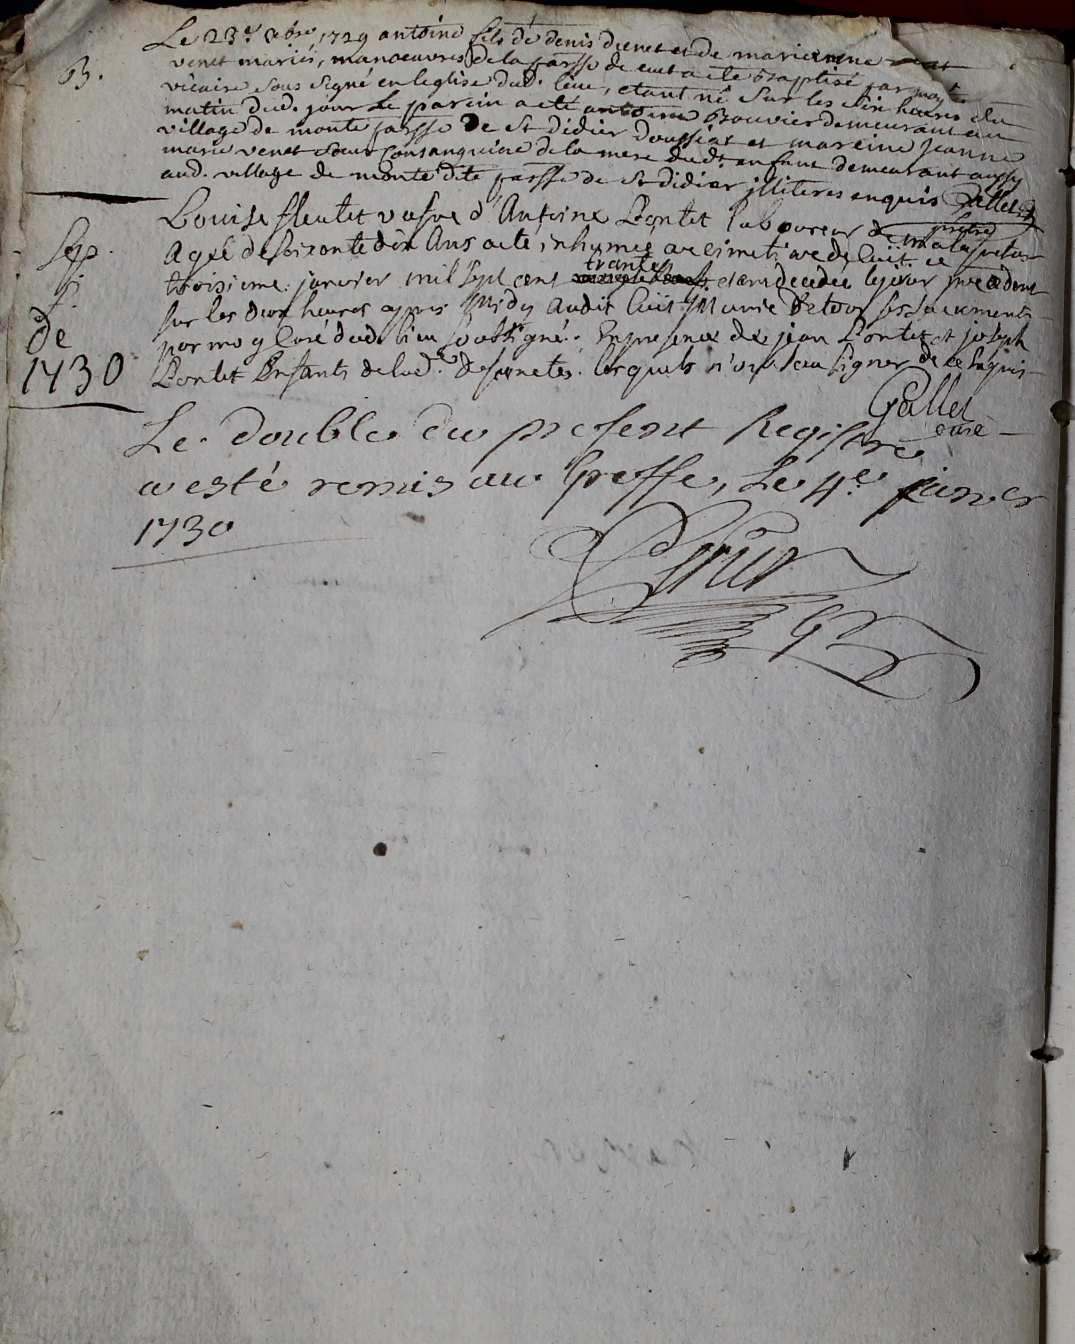 B.
Le 23e xbre 1729 antoine fils de denis ducret et de marie
venet mariés, manoeuvres de la parsse de cuit a été Baptisé par moy
vicaire sous signé en leglise dud. lieu, etant né Sur les six heures du
matin dud. jour Le parein a eté antoine Bouvier demeurant au
village de monte parsse De St didier doussiat et mareine jeanne
marie venet soeur consanguine de la mere dudt enfant demeurant aussy
aud. village de monte dite parsse de St didier illiteres enquis Gallet
Sep. f.
Louise fleutet vefve d'Antoine Pontet laboureur
Agée de soixante dix Ans a eté inhumée au cimetiere de Cuit ce
troisieme janvier mil sept cent trante etant decedée le jour precedent
sur les deux heures appres Midy Audit Cuit Munie De tous ses sacrements
par moy Curé dud. lieu soussigné. En presence de jean Pontet et joseph
Pontet Enfants de lad. defunte lesquels n'ont sceu signer de ce enquis
Gallet
curé
De
1730
Le double du present Registre
a esté remis au Greffe, Le 4e janver
1730